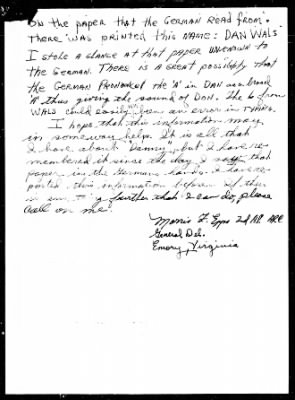 ON THE PAPER THAT THE GERMAN READ FROM.
THERE WAS PRINTED THIS NAME: DAN WALS
I STOLE A GLANCE AT THAT PAPER UNKNOWN TO
THE GERMAN. THERE IS A GREAT POSSIBILITY THAT
THE GERMAN PRONOUNCED THE 'A' IN DAN as a broad
'A' thus giving the sound of DON. The S from
WALS could easily been an error in TYPING.
I hope that this information may
in some way help. It is all that
I have about "Danny", but I have re-
membered it since the day I saw that
paper in the German hands. I have re-
ported this information before. If there
is any further that I can do, please
call on me.
Morris L. Epps 2d Lt.
General Del.
Emory, Virginia